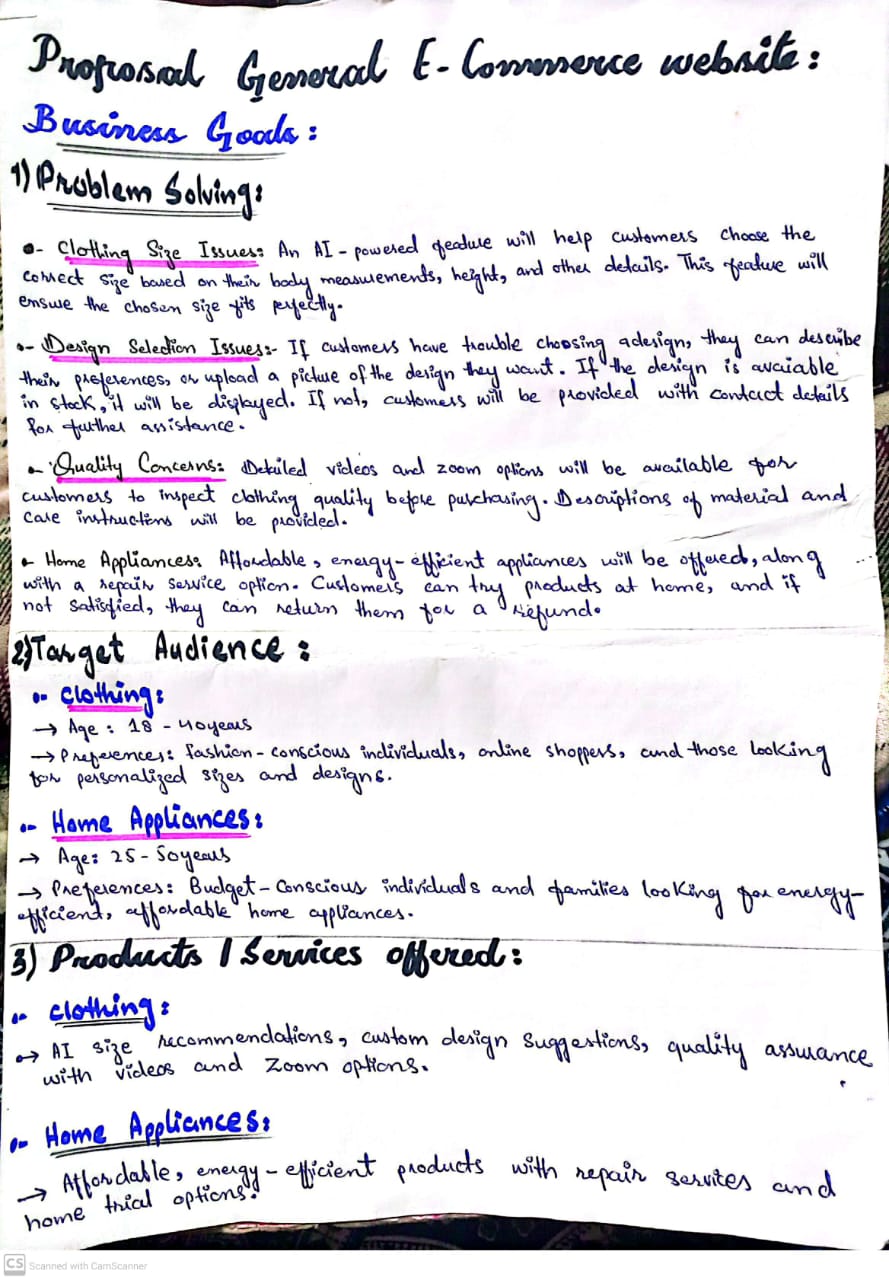 Proposal General E-Commerce website:
Business Goals:
1) Problem Solving:
•- Clothing Size Issues: An AI-powered feature will help customers choose the
correct size based on their body measurements, height, and other details. This feature will
ensure the chosen size fits perfectly.
•- Design Selection Issues:- If customers have trouble choosing a design, they can describe
their preferences, or upload a picture of the design they want. If the design is avaiable
in stock, it will be displayed. If not, customers will be provided with contact details
for further assistance.
•- Quality Concerns: Detailed videos and zoom options will be available for
customers to inspect clothing quality before purchasing. Descriptions of material and
care instructions will be provided.
•- Home Appliances: Affordable, energy-efficient appliances will be offered, along
with a repair service option. Customers can try products at home, and if
not satisfied, they can return them for a refund.
2) Target Audience:
•- Clothing:
→ Age: 18 - 40 years
→ Preferences: fashion-conscious individuals, online shoppers, and those looking
for personalized sizes and designs.
•- Home Appliances:
→ Age: 25 - 50 years
→ Preferences: Budget-Conscious individuals and families looking for energy-
efficient, affordable home appliances.
3) Products / Services offered:
•- Clothing:
→ AI size recommendations, custom design Suggestions, quality assurance
with videos and Zoom options.
•- Home Appliances:
→ Affordable, energy-efficient products with repair services and
home trial options.
CS Scanned with CamScanner